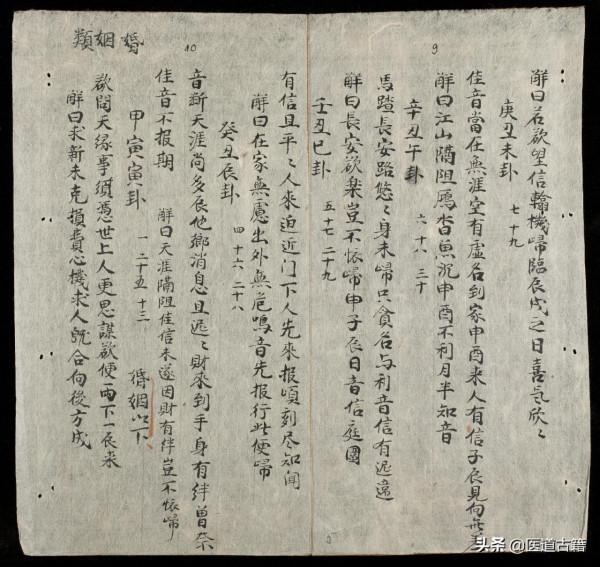 9
解曰若欲望信輪機歸臨辰戌之日喜氣欣〻
庚丑未卦
七 十九
佳音當在無涯空有虛名到家申酉來人有信子辰見向無差
解曰江山隔阻雁杳魚沉申酉不利月半知音
辛丑午卦
六 十八 三十
馬踏長安路悠〻身未歸只貪名与利音信有迟違
解曰長安欲樂豈不懷歸申子辰日音信庭圍
壬丑巳卦
五 十七 二十九
10
有信且平〻人來迫近门下人先來报頃刻尽知闻
解曰在家無慮出外無危鳴音先报行些便歸
癸丑辰卦
四 十六 二十八
音斷天涯尚多辰他鄉消息且迟〻財來到手身有絆曾奈
佳音不报期 解曰天涯隔阻佳信未遂因財有絆豈不懷歸
甲寅寅卦
一 二十五 十三
婚姻以下
欲問天缘事須憑世上人更思謀欲便两下一辰来
解曰求新未克損費心機求人既合向後方成
婚姻類
头条 @医道古籍